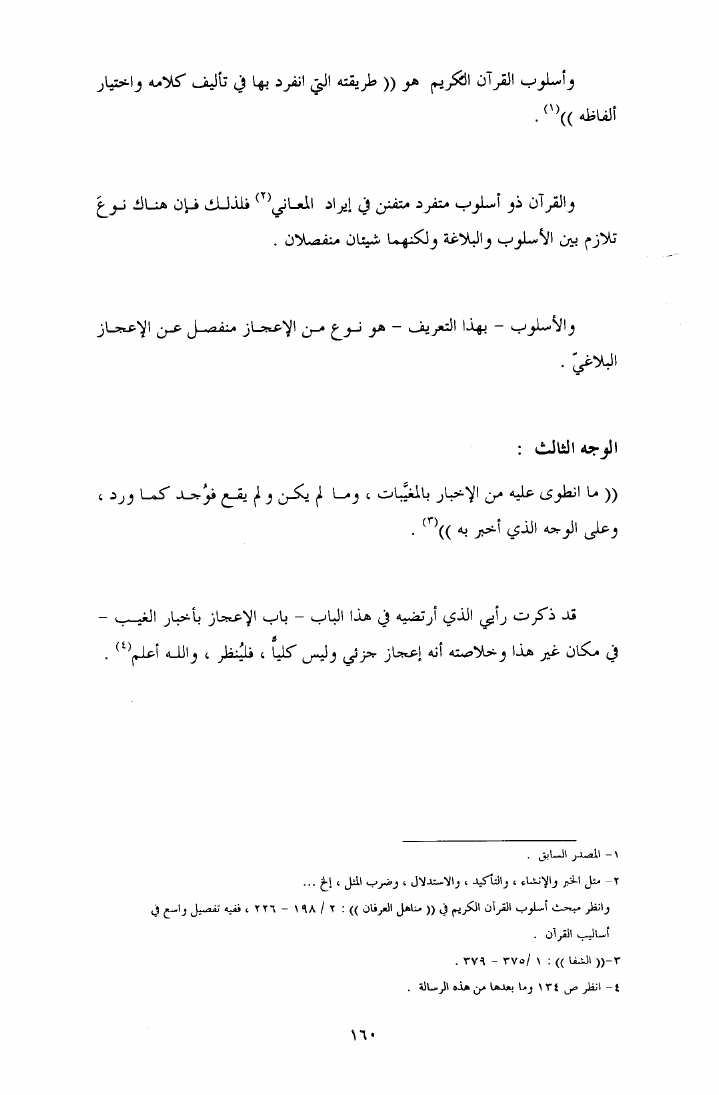 وأسلوب القرآن الكريم هو (( طريقته التي انفرد بها في تأليف كلامه واختيار
ألفاظه ))(١) .
والقرآن ذو أسلوب متفرد متفنن في إيراد المعـاني(٢) فلذلـك فـإن هنـاك نـوعَ
تلازم بين الأسلوب والبلاغة ولكنهما شيئان منفصلان .
والأسلوب – بهذا التعريف – هو نـوع مـن الإعجـاز منفصـل عـن الإعجـاز
البلاغيّ .
الوجه الثالث :
(( ما انطوى عليه من الإخبار بالمغيَّبات ، ومـا لم يكـن و لم يقـع فوُجـد كمـا ورد ،
وعلى الوجه الذي أخبر به ))(٣) .
قد ذكرت رأيي الذي أرتضيه في هذا الباب – باب الإعجاز بأخبار الغيـب –
في مكان غير هذا وخلاصته أنه إعجاز جزئي وليس كلياً ، فليُنظر ، واللـه أعلم(٤) .
١– المصدر السابق .
٢– مثل الخبر والإنشاء ، والتأكيد ، والاستدلال ، وضرب المثل ، إلخ ...
وانظر مبحث أسلوب القرآن الكريم في (( مناهل العرفان )) : ٢ / ١٩٨ – ٢٢٦ ، ففيه تفصيل واسع في
أساليب القرآن .
٣–(( الشفا )) : ١ /٣٧٥ – ٣٧٩ .
٤– انظر ص ١٣٤ وما بعدها من هذه الرسالة .
١٦٠